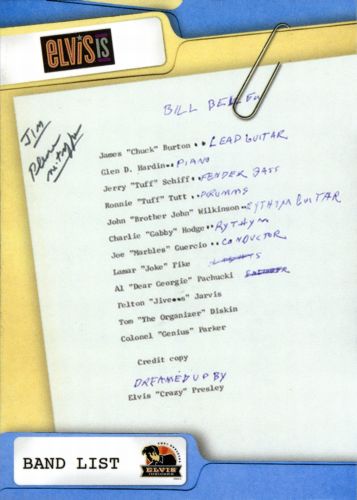 ELVIS IS
BILL BELEW
JIM
James "Chuck" Burton..LEAD GUITAR
Glen D. Hardin..PIANO
Jerry "Tuff" Schiff..FENDER BASS
Ronnie "Tuff" Tutt..DRUMMS
John "Brother John" Wilkinson..RYTHYM GUITAR
Charlie "Gabby" Hodge..RYTHYM
Joe "Marbles" Guercio..CONDUCTOR
Lamar "Joke" Fike
Al "Dear Georgie" Pachucki
Felton "Jive..s" Jarvis
Tom "The Organizer" Diskin
Colonel "Genius" Parker
Credit copy
DREAMED UP BY
Elvis "Crazy" Presley
BAND LIST
ELVIS